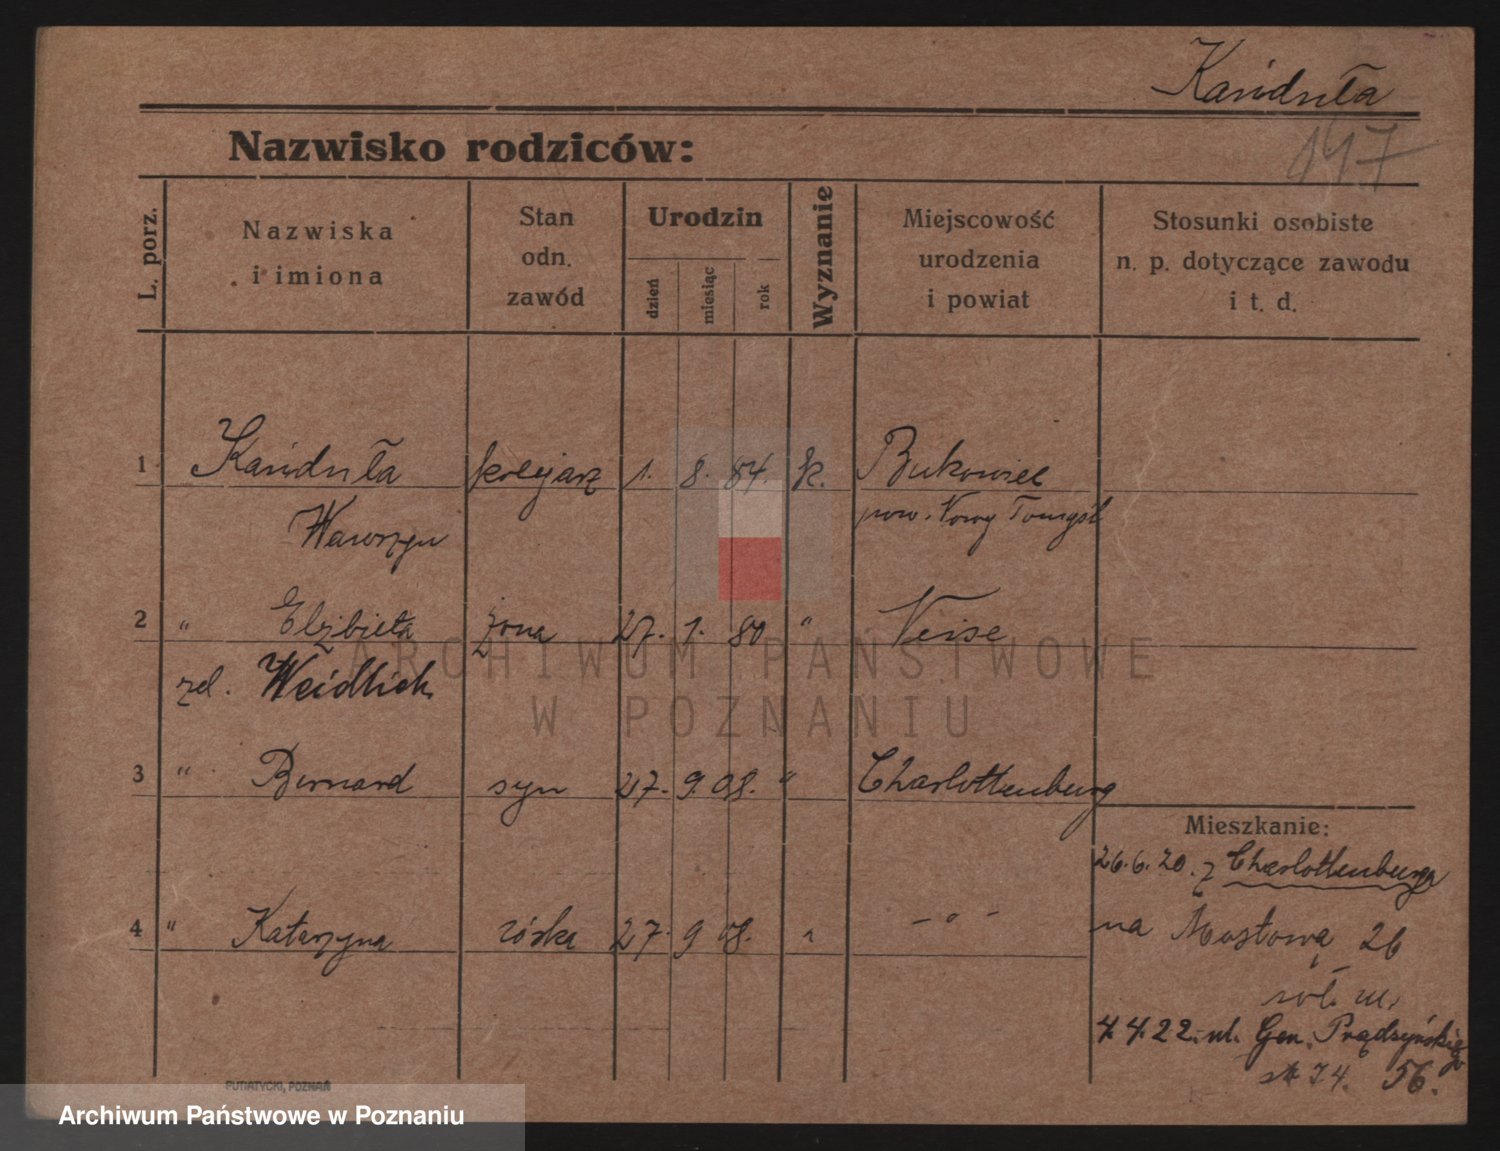 Kańduła
147
Nazwisko rodziców:
L. porz.
Nazwiska
i imiona
Stan
odn.
zawód
Urodzin
dzień
miesiąc
rok
Wyznanie
Miejscowość
urodzenia
i powiat
Stosunki osobiste
n. p. dotyczące zawodu
i t. d.
1 Kańduła kolejarz 1. 8. 84. k. Bukowiec
Wawrzyn pow. Nowy Tomyśl
2 " Elżbieta żona 27. 1. 80 " Neise
zd. Weidlich
ARCHIWUM PAŃSTWOWE
W POZNANIU
3 " Bernard syn 27. 9. 08. " Charlottenburg
Mieszkanie:
26.6.20. z Charlottenburga
4 " Katarzyna córka 27. 9 08. " — " —
na Mostową 26
4.4.22. ul. Gen. Prądzyńskiego
56.
PUTIATYCKI, POZNAŃ
Archiwum Państwowe w Poznaniu